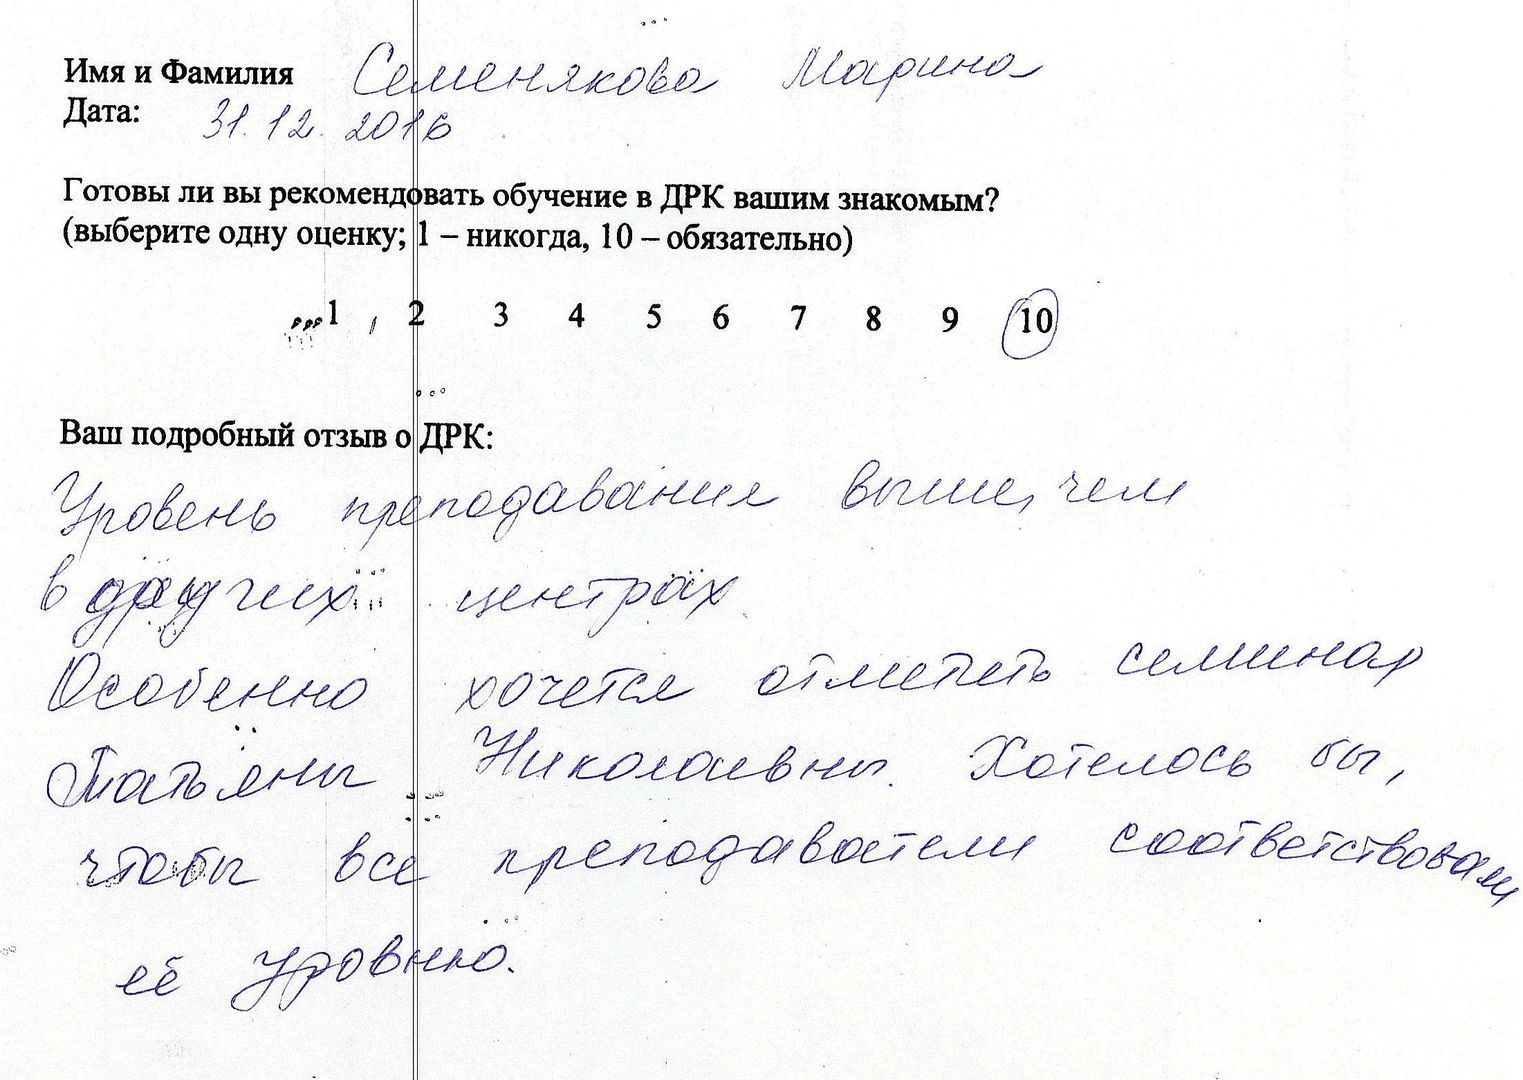 Имя и Фамилия Семенякова Марина
Дата: 31.12.2016
Готовы ли вы рекомендовать обучение в ДРК вашим знакомым?
(выберите одну оценку; 1 – никогда, 10 – обязательно)
1 2 3 4 5 6 7 8 9 10
Ваш подробный отзыв о ДРК:
Уровень преподавания выше, чем
в других центрах
Особенно хочется отметить семинар
Татьяны Николаевны. Хотелось бы,
чтобы все преподаватели соответствовали
её уровню.